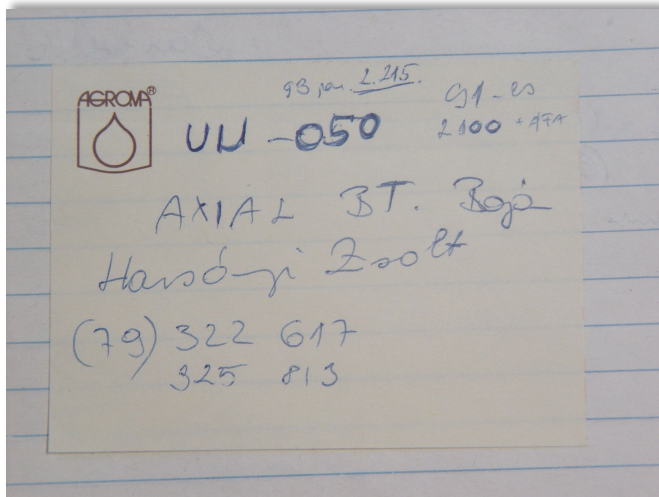 AGROVA®
93 jan. 2.215.
91-es
2100 + ÁFA
UW-050
AXIAL BT. Baja
Harsányi Zsolt
(79) 322 617
325 813